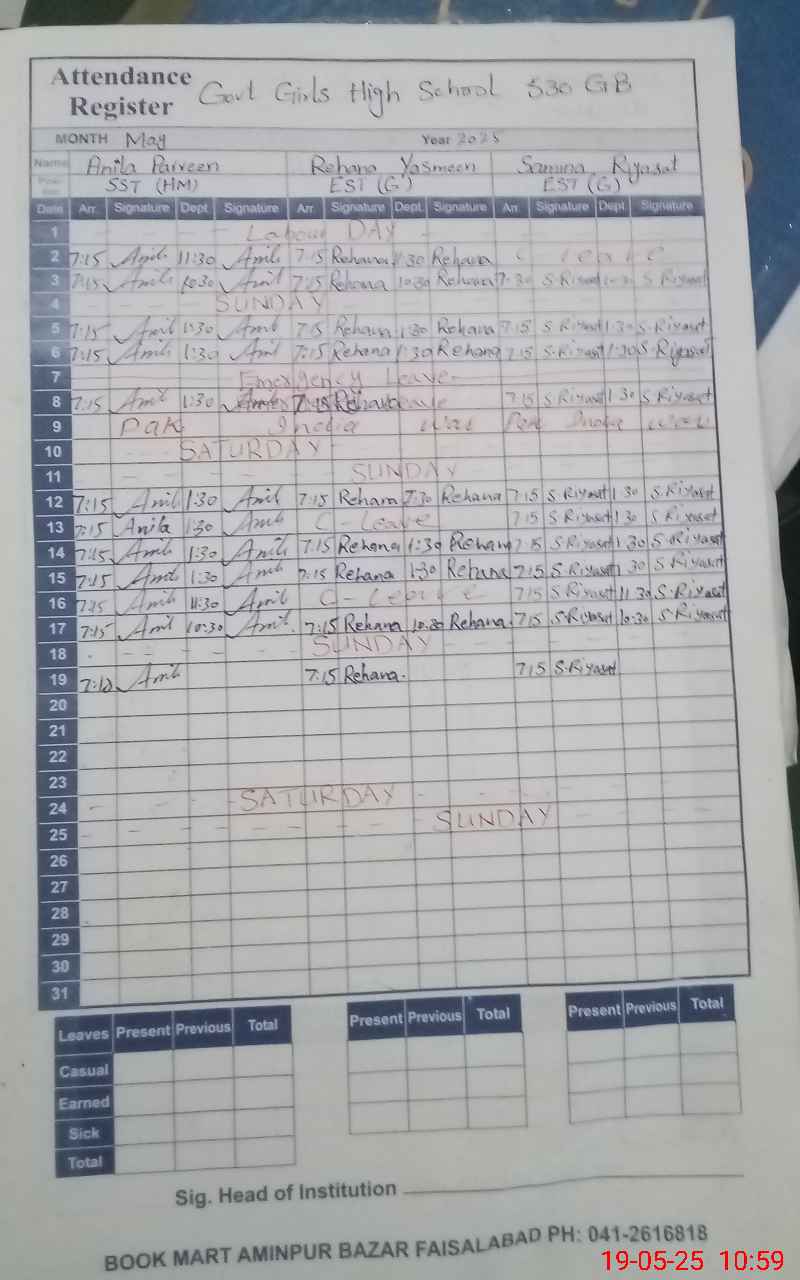 Attendance Register Govt Girls High School 530 GB
MONTH May Year 2025
Name Anila Parveen Rehana Yasmeen Samina Riyasat
SST (HM) EST (G) EST (G)
Date Arr. Signature Dept Signature Arr. Signature Dept. Signature Arr. Signature Dept. Signature
1 Labour DAY
2 7:15 Anil 11:30 Anil 7:15 Rehana Rehana C leave
3 7:15 Anil 10:30 Anil 7:15 Rehana 10:30 Rehana 7:30 S.Riyasat S Riyasat
4 SUNDAY
5 7:15 Anil 1:30 Anil 7:15 Rehana 1:30 Rehana 7:15 S Riyasat 1:30 S.Riyasat
6 7:15 Anil 1:30 Anil 7:15 Rehana 1:30 Rehana 7:15 S.Riyasat 1:30 S.Riyasat
7 Emergency Leave
8 7:15 Anil 1:30 7:15 Rehana 7:15 S.Riyasat 1:30 S.Riyasat
9 Pak India War Pak India War
10 SATURDAY
11 SUNDAY
12 7:15 Anil 1:30 Anil 7:15 Rehana 1:30 Rehana 7:15 S.Riyasat 1:30 S.Riyasat
13 7:15 Anila 1:30 Anil C-Leave 7:15 S.Riyasat 1:30 S Riyasat
14 7:15 Anil 1:30 Anil 7:15 Rehana 1:30 Rehana 7:15 S.Riyasat 1:30 S.Riyasat
15 7:15 Anil 1:30 Anil 7:15 Rehana 1:30 Rehana 7:15 S.Riyasat 1:30 S.Riyasat
16 7:15 Anil 11:30 Anil C-Leave 7:15 S.Riyasat 11:30 S.Riyasat
17 7:15 Anil 10:30 Anil. 7:15 Rehana 10:30 Rehana 7:15 S.Riyasat 10:30 S.Riyasat
18 SUNDAY
19 Anil 7:15 Rehana. 7:15 S.Riyasat
20
21
22
23
24 SATURDAY
25 SUNDAY
26
27
28
29
30
31
Leaves Present Previous Total Present Previous Total Present Previous Total
Casual
Earned
Sick
Total
Sig. Head of Institution
BOOK MART AMINPUR BAZAR FAISALABAD PH: 041-2616818
19-05-25 10:59